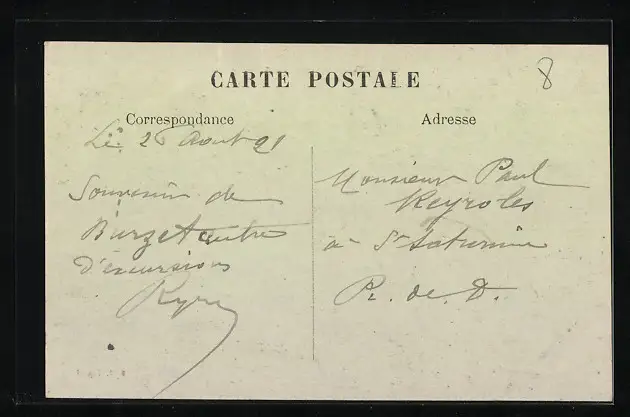 CARTE POSTALE
8
Correspondance
Le 26 Aout 21
Souvenir de
Burzet centre
d'excursions
Adresse
Monsieur Paul
Reyroles
à St Saturnin
P. de. D.